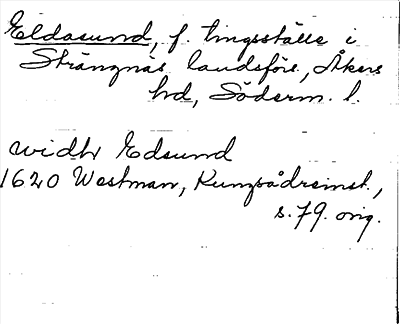 Eldasund, f. tingsställe i
Strängnäs landsförs., Åkers
hd, Söderm. l.
widh Edsund
1620 Westman, Kungsådreinst.,
s. 79. orig.